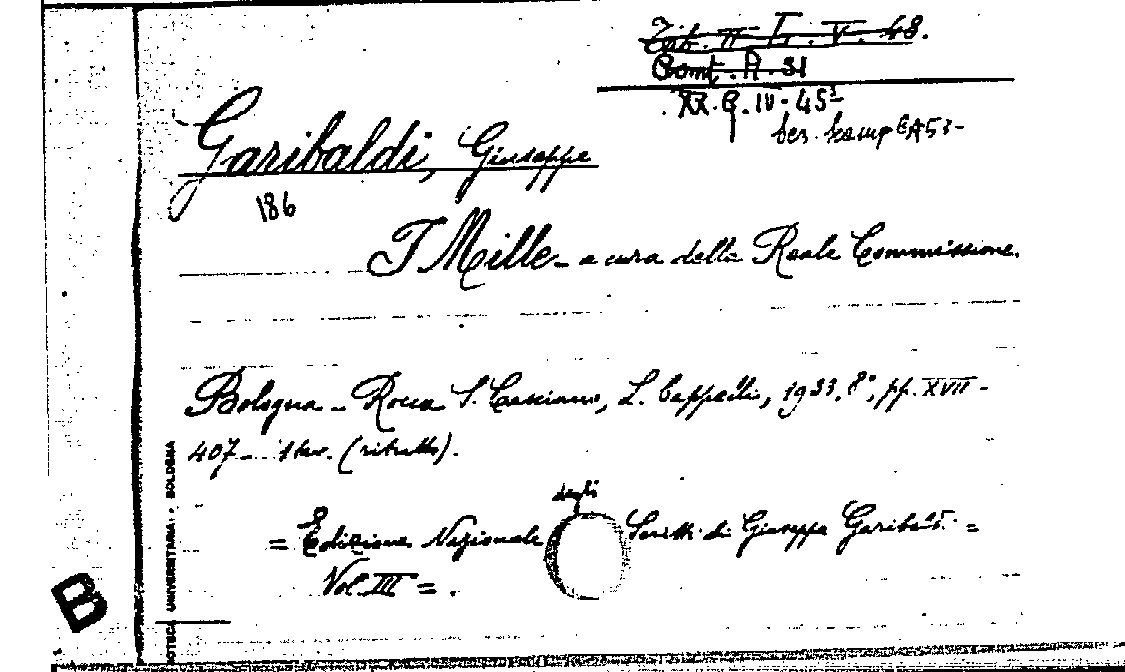 Tab. II L. V. 48.
Comt. A. 31
XX. G. IV - 45²
Garibaldi, Giuseppe
186
I Mille - a cura della Reale Commissione.
Bologna - Rocca S. Casciano, L. Cappelli, 1933, 8°, pp. XVII -
407 - 1 tav. (ritratto).
= Edizione Nazionale degli Scritti di Giuseppe Garibaldi =
Vol. III = .
B
OTECA UNIVERSITARIA - BOLOGNA